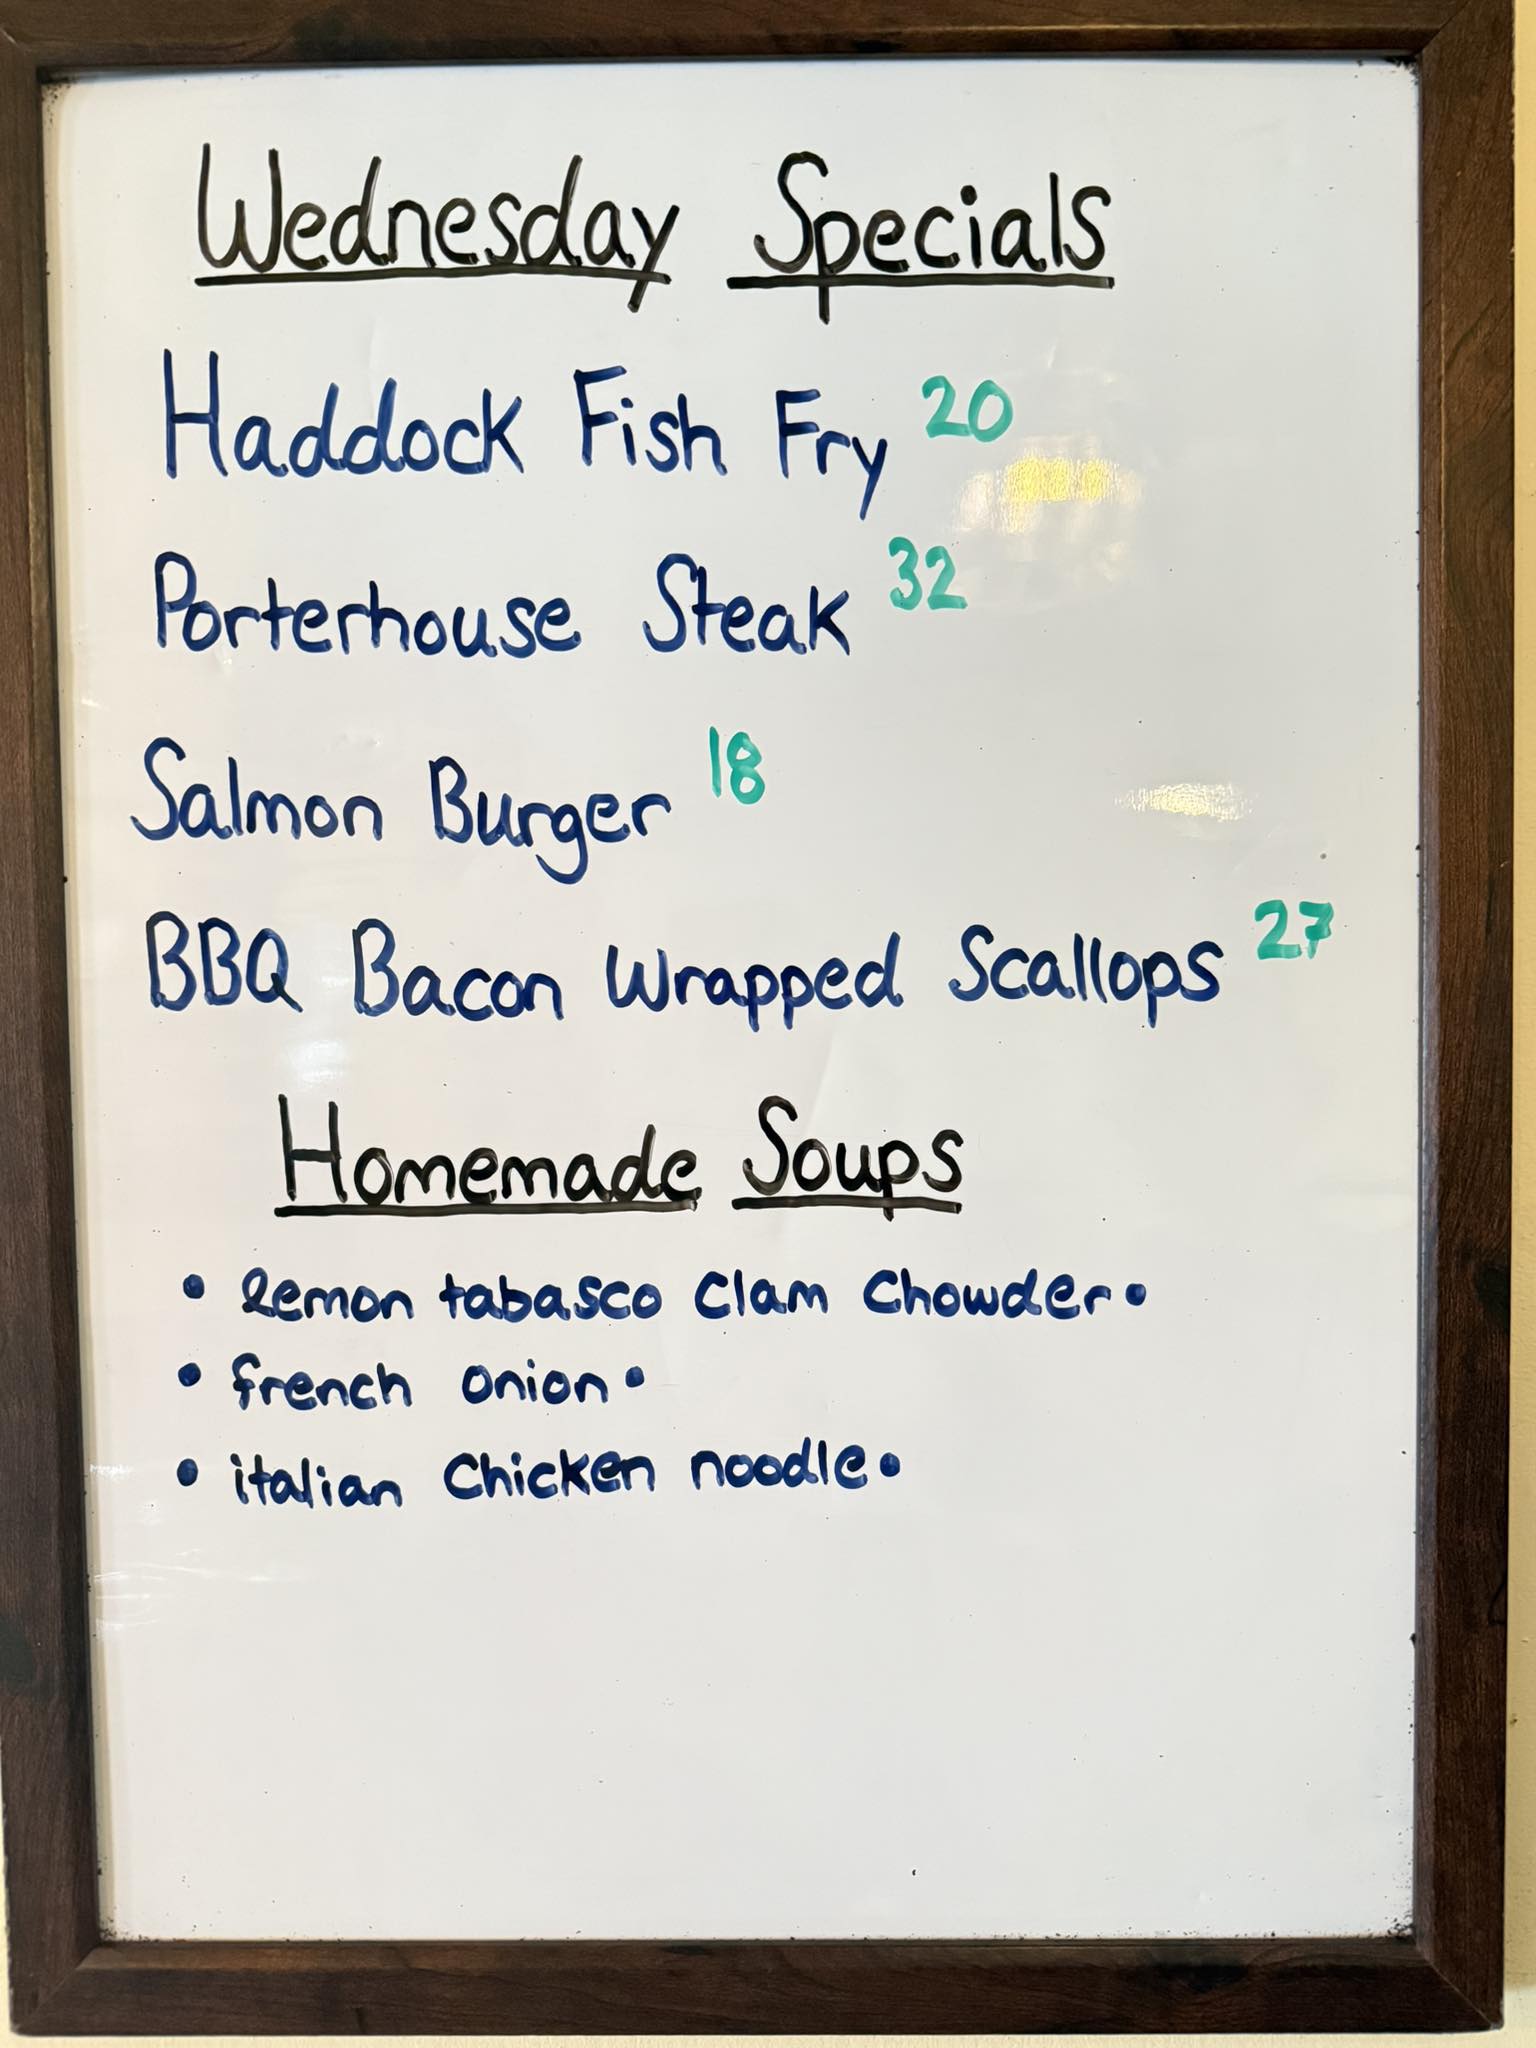 Wednesday Specials
Haddock Fish Fry 20
Porterhouse Steak 32
Salmon Burger 18
BBQ Bacon Wrapped Scallops 27
Homemade Soups
• lemon tabasco Clam Chowder •
• french onion •
• italian Chicken noodle •